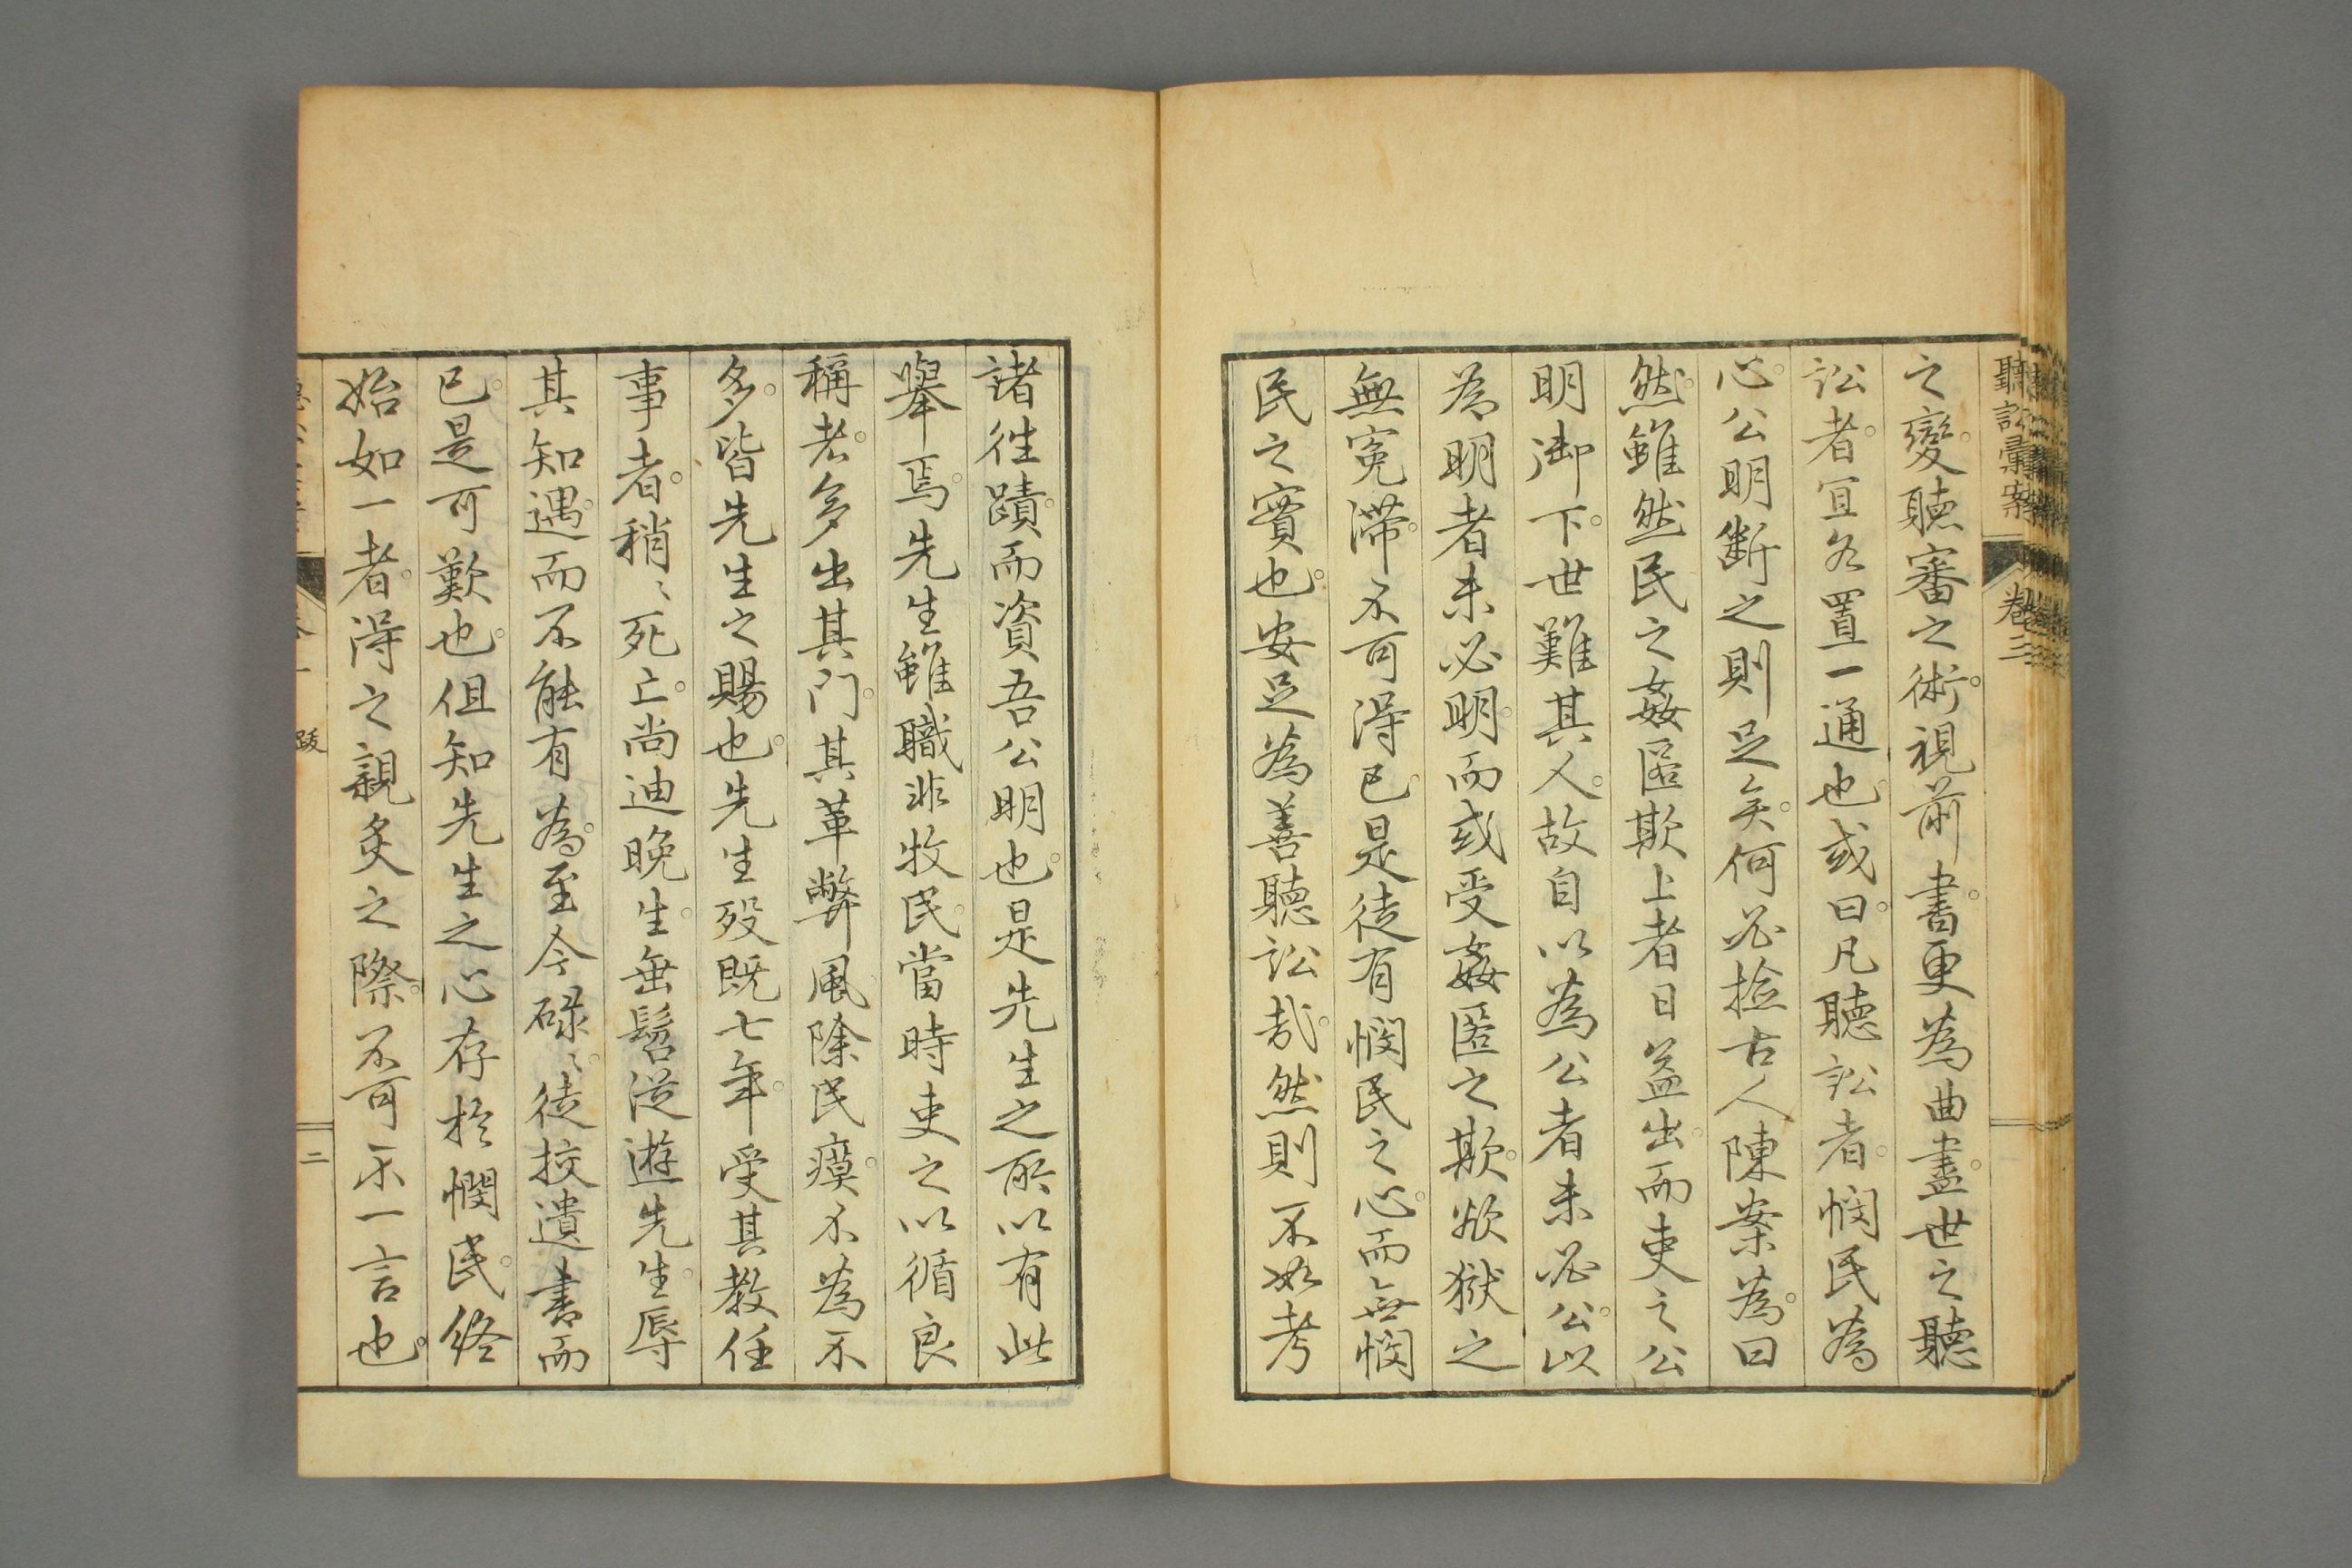 聽訟彙案
卷三
之變。聽審之術。視前書。更為曲盡。世之聽
訟者。宜各置一通也。或曰。凡聽訟者。憫民為
心。公明斷之則足矣。何必撿古人陳案為。曰
然。雖然民之姦匿欺上者日益出。而吏之公
明御下。世難其人。故自以為公者未必公。以
為明者未必明。而或受姦匿之欺。欲獄之
無冤滯。不可得已。是徒有憫民之心。而無憫
民之實也。安足為善聽訟哉。然則不如考
諸往蹟。而資吾公明也。是先生之所以有此
舉焉。先生雖職非牧民。當時吏之以循良
稱者。多出其門。其革弊風。除民瘼。不為不
多。皆先生之賜也。先生歿既七年。受其教任
事者。稍〻死亡。尚迪晚生。垂髫從遊先生。辱
其知遇。而不能有為。至今碌〻。徒挍遺書而
已。是可歎也。但知先生之心存於憫民。終
始如一者。得之親炙之際。不可不一言也。
跋
二